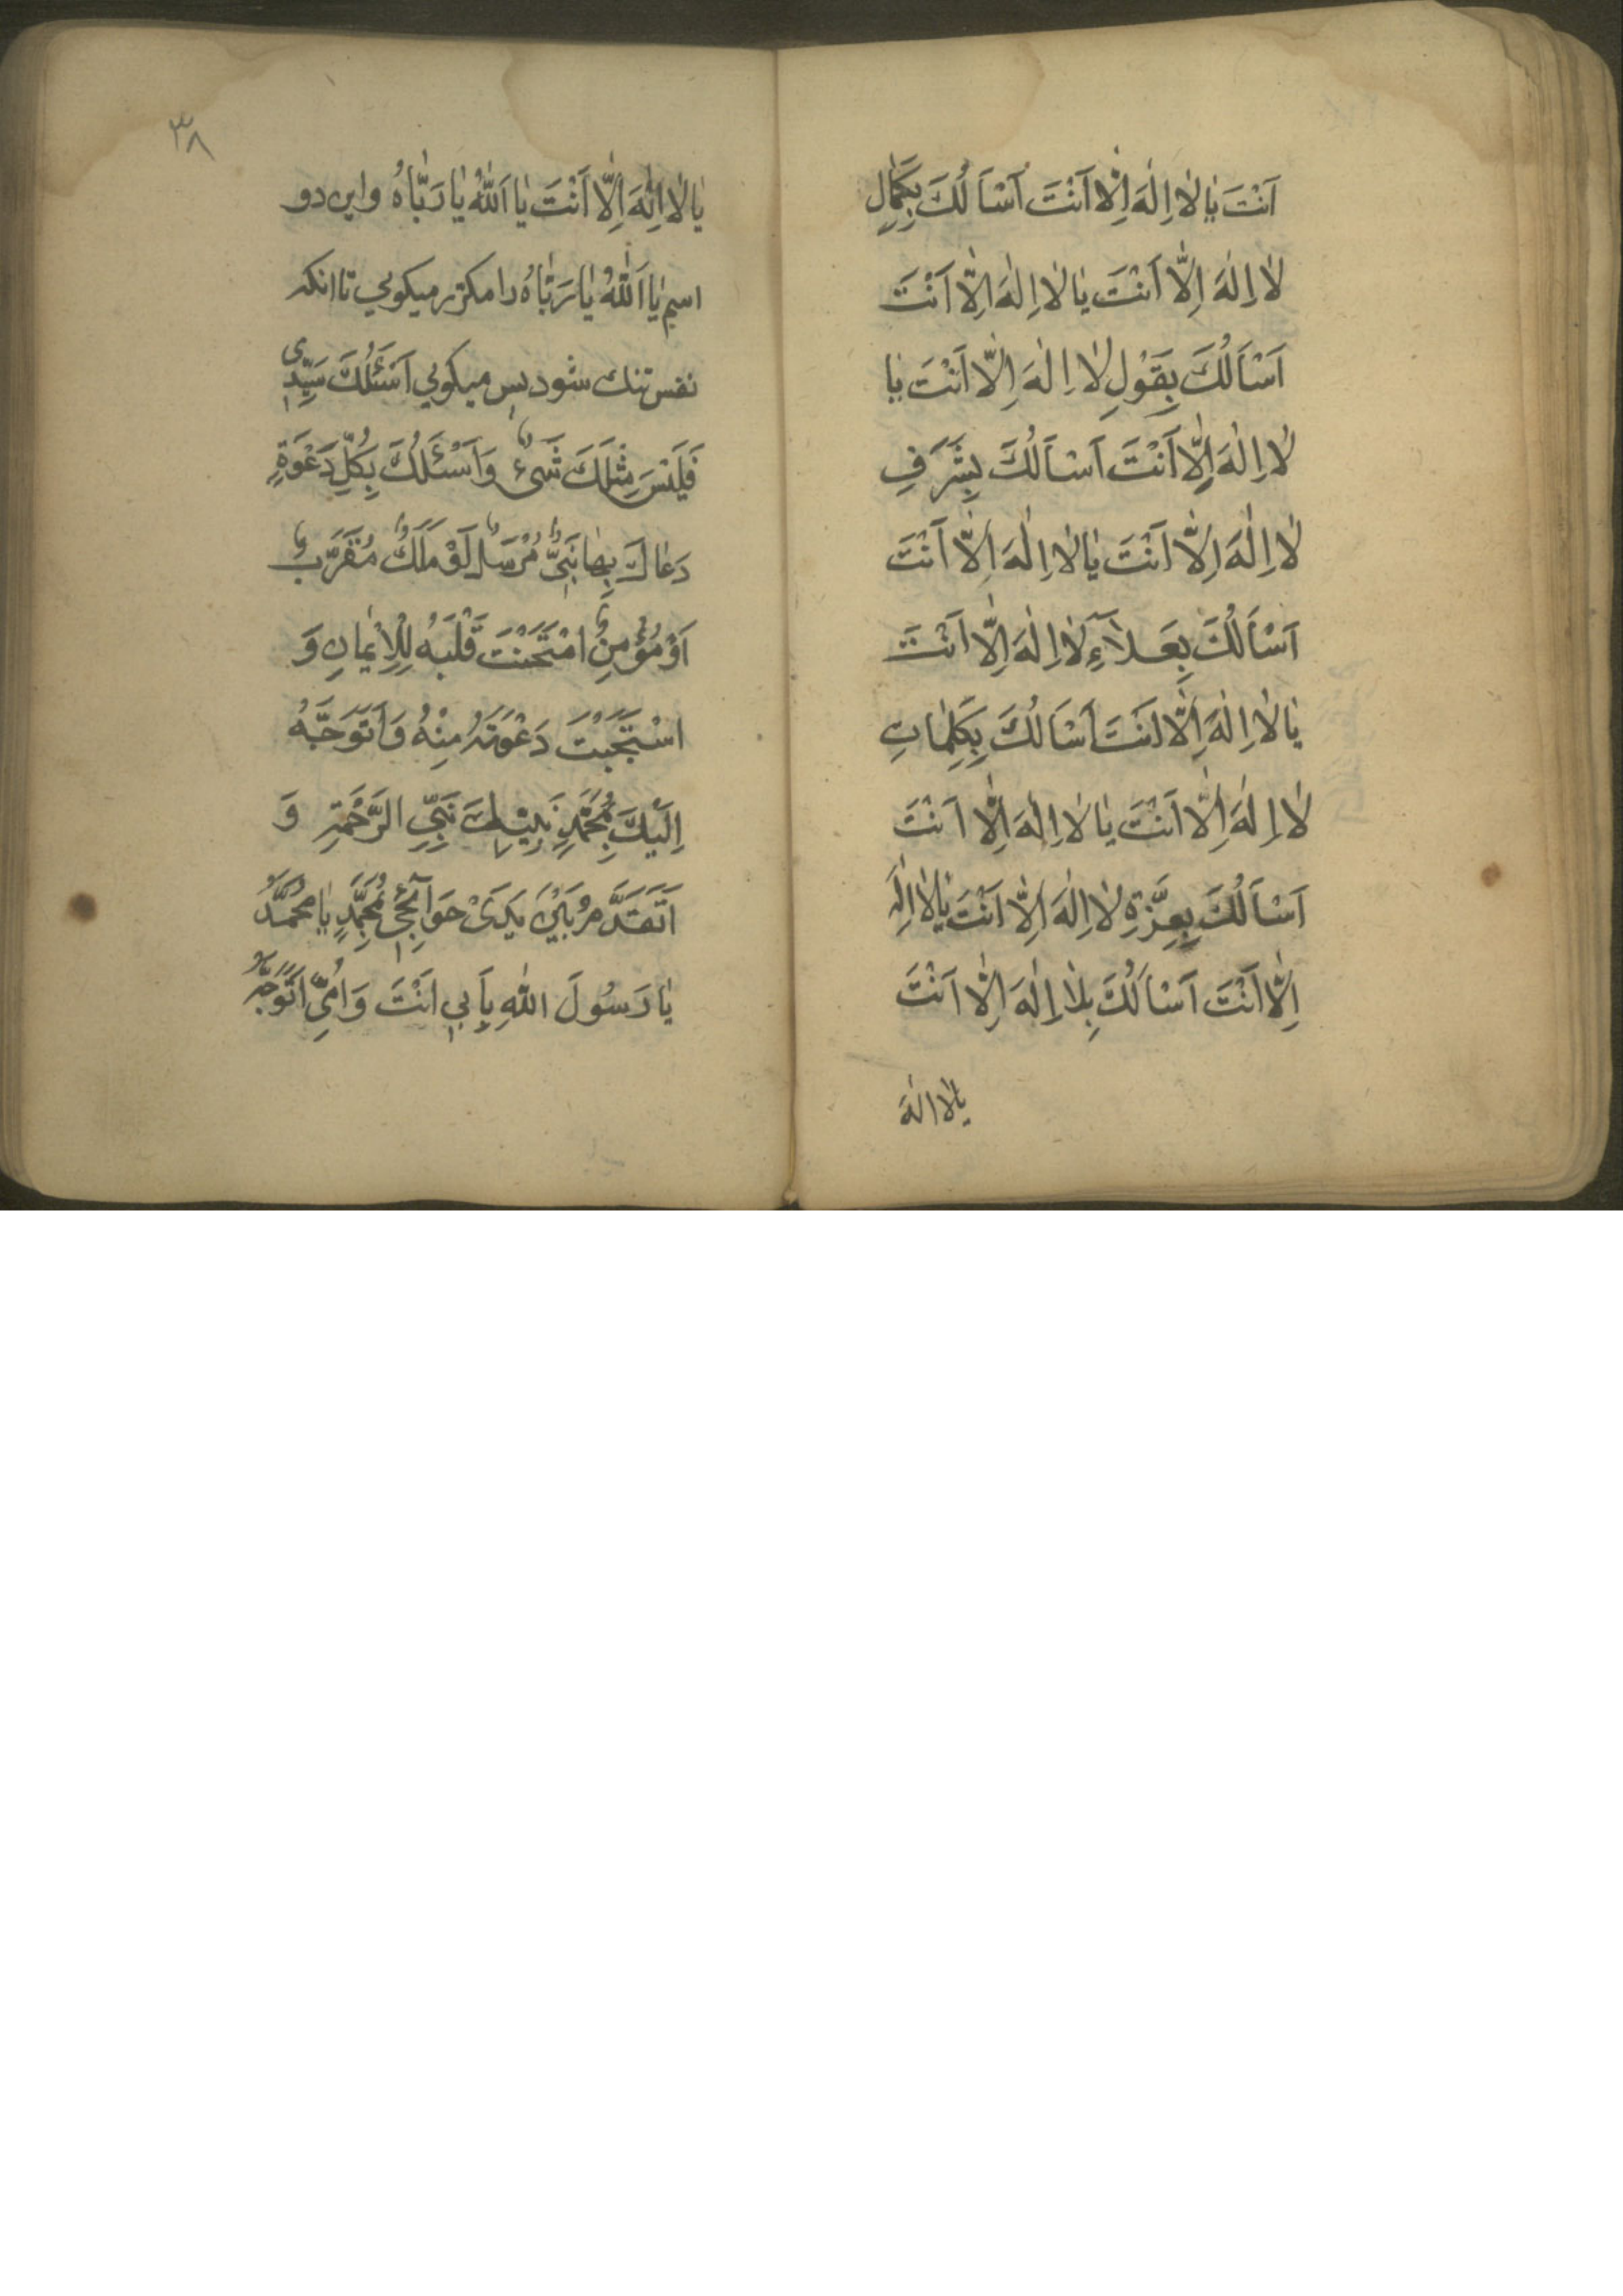 اَنْتَ يٰا لٰا اِلٰهَ اِلّٰا اَنْتَ اَسْاَلُكَ بِكَمٰالِ
لٰا اِلٰهَ اِلّٰا اَنْتَ يٰا لٰا اِلٰهَ اِلّٰا اَنْتَ
اَسْاَلُكَ بِقَوْلِ لٰا اِلٰهَ اِلّٰا اَنْتَ يٰا
لٰا اِلٰهَ اِلّٰا اَنْتَ اَسْاَلُكَ بِشَرَفِ
لٰا اِلٰهَ اِلّٰا اَنْتَ يٰا لٰا اِلٰهَ اِلّٰا اَنْتَ
اَسْاَلُكَ بِعَلاٰۤءِ لٰا اِلٰهَ اِلّٰا اَنْتَ
يٰا لٰا اِلٰهَ اِلّٰا اَنْتَ اَسْاَلُكَ بِكَلِمٰاتِ
لٰا اِلٰهَ اِلّٰا اَنْتَ يٰا لٰا اِلٰهَ اِلّٰا اَنْتَ
اَسْاَلُكَ بِعِزَّةِ لٰا اِلٰهَ اِلّٰا اَنْتَ يٰا لٰا اِلٰهَ
اِلّٰا اَنْتَ اَسْاَلُكَ بِلٰا اِلٰهَ اِلّٰا اَنْتَ
يا لا اله
٣٨
يٰا لٰا اِلٰهَ اِلّٰا اَنْتَ يٰا اَللّٰهُ يٰا رَبّٰاهُ واين دو
اسم يٰا اَللّٰهُ يٰا رَبّٰاهُ را مكرّر ميكويي تا انكه
نفس تنك شود پس ميكويي اَسْئَلُكَ سَيِّدى
فَلَيْسَ مِثْلَكَ شَىْءٌ وَاَسْئَلُكَ بِكُلِّ دَعْوَةٍ
دَعٰاكَ بِهٰا نَبِىٌّ مُرْسَلٌ اَوْ مَلَكٌ مُقَرَّبٌ
اَوْ مُؤْمِنٌ امْتَحَنْتَ قَلْبَهُ لِلْاِيْمٰانِ وَ
اسْتَجَبْتَ دَعْوَتَهُ مِنْهُ وَاَتَوَجَّهُ
اِلَيْكَ بِمُحَمَّدٍ نَبِيِّكَ نَبِيِّ الرَّحْمَةِ وَ
اَتَقَدَّمُ بَيْنَ يَدَىْ حَوَآئِجِىْ بِمُحَمَّدٍ يٰا مُحَمَّدُ
يٰا رَسُولَ اللّٰهِ بِاَبِي اَنْتَ وَاُمِّى اَتَوَجَّهُ